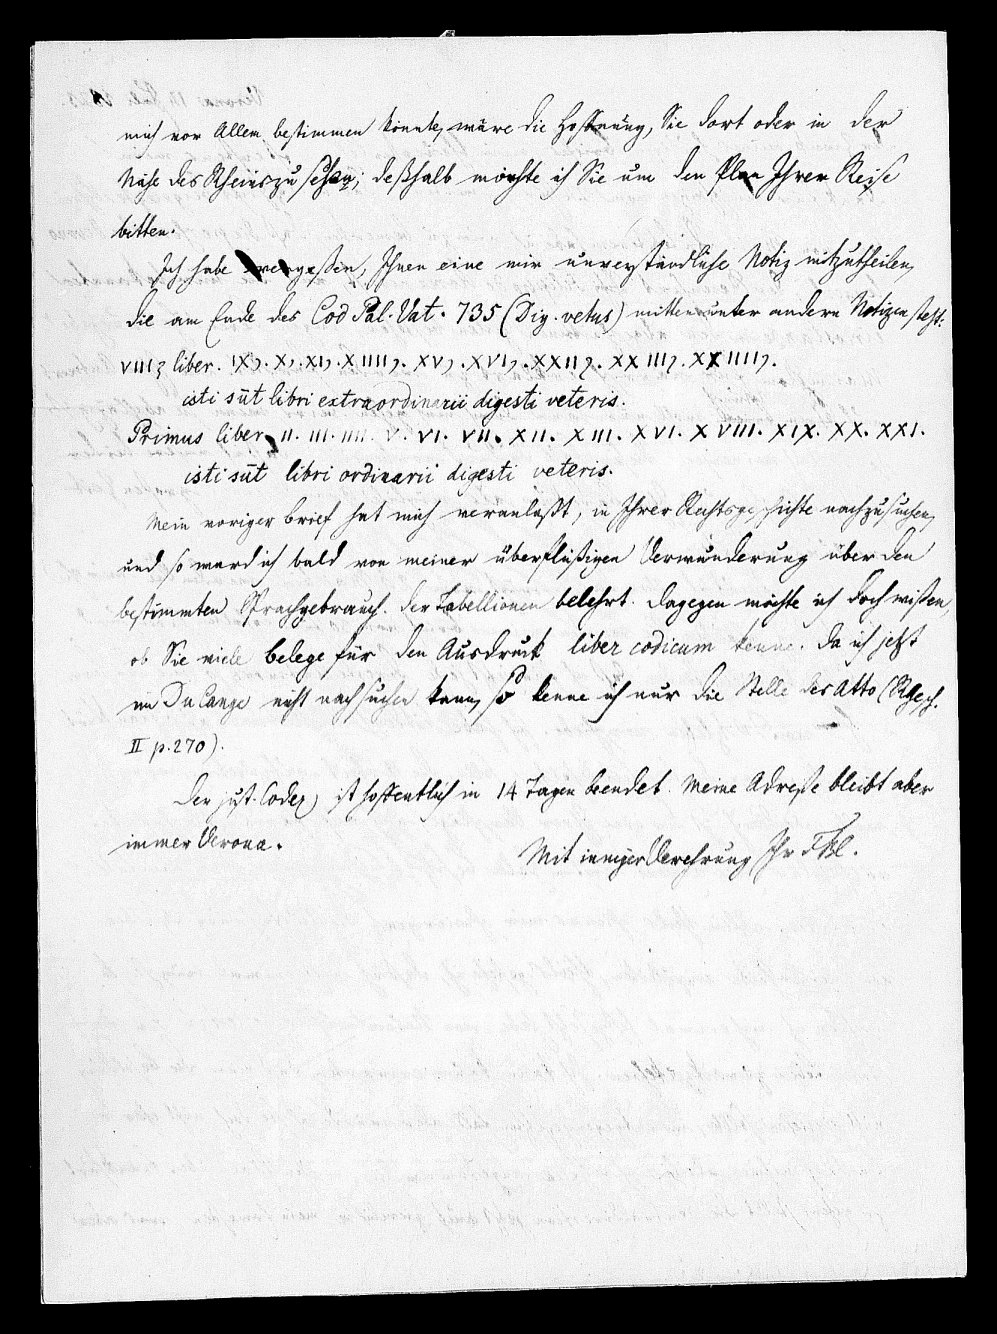 mich vor Allem bestimmen könnte, wäre die Hoffnung, Sie dort oder in der
Nähe des Rheins zu sehen; deßhalb möchte ich Sie um den Plan Ihrer Reise
bitten.
Ich habe vergeßen, Ihnen eine mir unverständliche Notiz mitzutheilen,
die am Ende des Cod Pal. Vat. 735 (Dig. vetus) mitten unter andern Notizen steht:
VIIII liber. IX, X, XI, XIIII, XV, XVI, XXII, XXIII, XXIIII,
isti sūt libri extraordinarii digesti veteris.
Primus liber, II. III. IIII. V. VI. VII. XII. XIII. XVI. XVIII. XIX. XX. XXI.
isti sūt libri ordinarii digesti veteris.
Mein voriger Brief hat mich veranlaßt, in Ihrer Rechtsgeschichte nachzusuchen,
und so ward ich bald von meiner überflüßigen Verwunderung über den
bestimmten Sprachgebrauch der Tabellionen belehrt. Dagegen möchte ich doch wißen,
ob Sie viele Belege für den Ausdruck liber codicum kennen. Da ich jetzt
im Du Cange nicht nachsuchen kann, so kenne ich nur die Stelle des Atto (RGesch.
II p. 270).
Der just. Codex ist hoffentlich in 14 Tagen beendet. Meine Adreße bleibt aber
immer Verona.
Mit inniger Verehrung Ihr FBl.